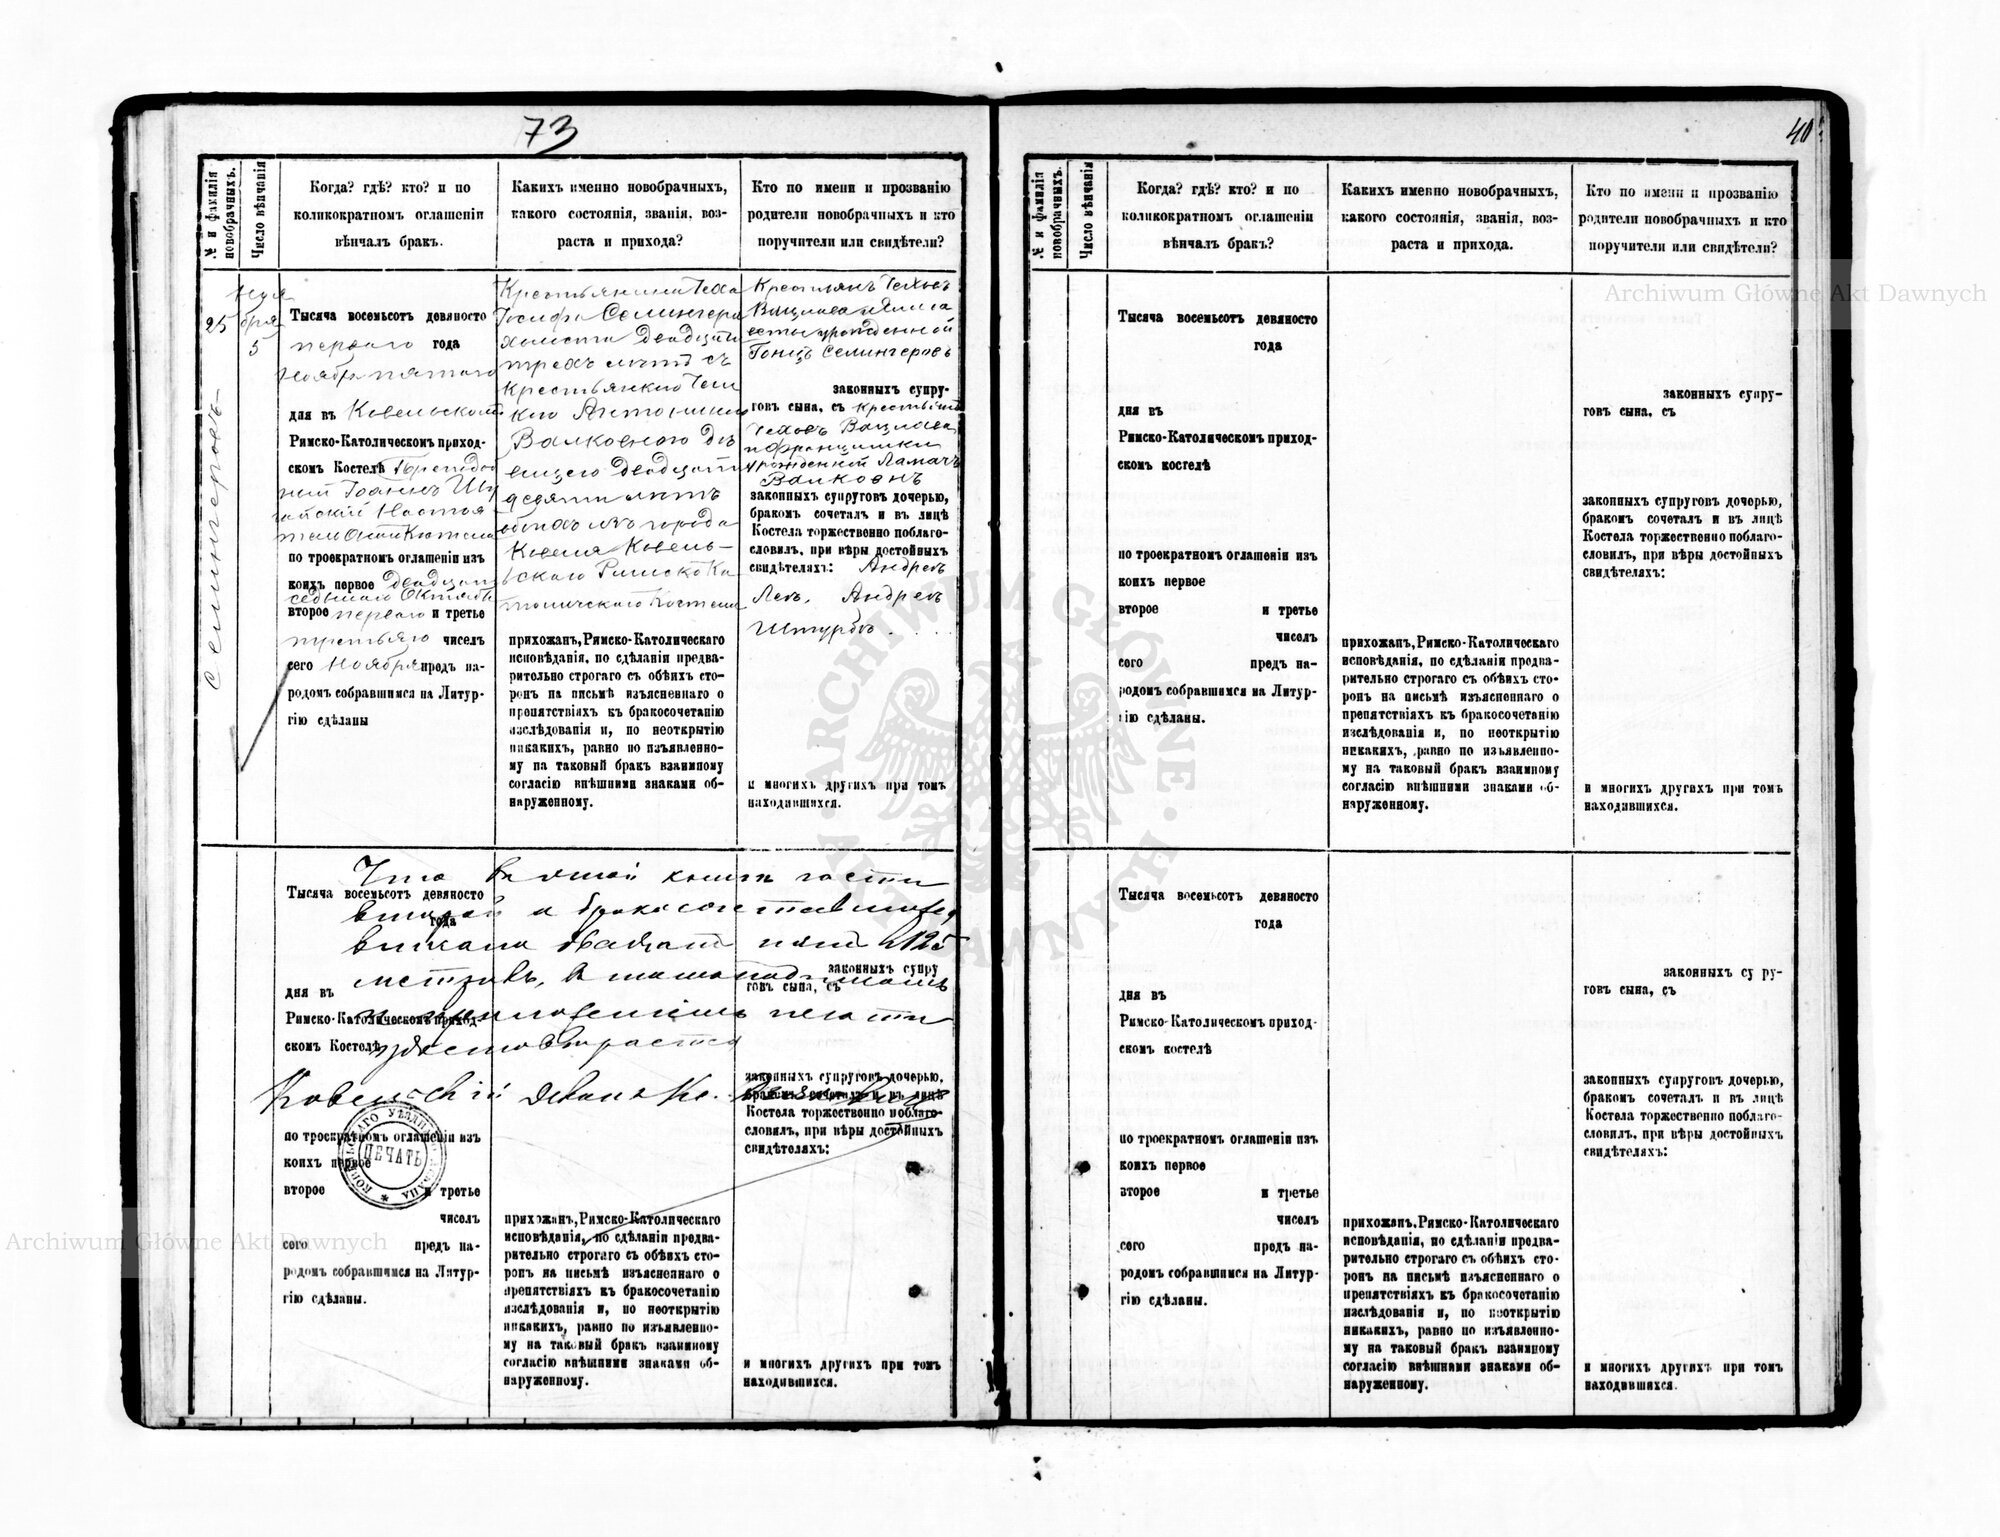 73
№ и фамилія новобрачныхъ.
Число вѣнчанія
Когда? гдѣ? кто? и по
коликократномъ оглашеніи
вѣнчалъ бракъ.
Какихъ именно новобрачныхъ,
какого состоянія, званія, воз-
раста и прихода?
Кто по имени и прозванію
родители новобрачныхъ и кто
поручители или свидѣтели?
25
Ноя
бря
5
Тысяча восемьсотъ девяносто
перваго года
Ноября пятаго
дня въ Ковельскомъ
Римско-Католическомъ приход-
скомъ Костелѣ
Іоаннъ
по троекратномъ оглашеніи изъ
коихъ первое двадцать
седьмаго Октября
второе перваго и третье
третьяго чиселъ
сего Ноября предъ на-
родомъ собравшимся на Литур-
гію сдѣланы
Крестьянина Чеха
Іосифа Селингера
холоста двадцати
трехъ лѣтъ съ
Крестьянкою
Антониною
Валковною
двадцати
лѣтъ
обоихъ изъ города
Ковеля Ковель-
скаго Римско Ка-
толическаго Костела
прихожан, Римско-Католическаго
исповѣданія, по сдѣланіи предва-
рительно строгаго съ обѣихъ сто-
ронъ на письмѣ изъясненнаго о
препятствіяхъ къ бракосочетанію
изслѣдованія и, по неоткрытію
никакихъ, равно по изъявленно-
му на таковый бракъ взаимному
согласію внѣшними знаками об-
наруженному.
Крестьянъ Чеховъ
Вацлава
урожденной
Селингеровъ
законныхъ супру-
говъ сына, съ крестьянъ
Чеховъ Вацлава
и Францишки
урожденной Ламачъ
Валковъ
законныхъ супруговъ дочерью,
бракомъ сочеталъ и въ лицѣ
Костела торжественно поблаго-
словилъ, при вѣры достойныхъ
свидѣтеляхъ: Андреѣ
Андреѣ
и многихъ другихъ при томъ
находившихся.
Тысяча восемьсотъ девяносто
года
дня въ
Римско-Католическомъ приход-
скомъ Костелѣ
по троекратномъ оглашеніи изъ
коихъ первое
второе и третье
чиселъ
сего предъ на-
родомъ собравшимся на Литур-
гію сдѣланы.
Что въ этой книгѣ части
второй о бракосочетавшихся
вписано двадцать пять 25
въ томъ подписомъ
и приложеніемъ печати
удостовѣряется
Ковельскій Деканъ Кс.
ПЕЧАТЬ
прихожан, Римско-Католическаго
исповѣданія, по сдѣланіи предва-
рительно строгаго съ обѣихъ сто-
ронъ на письмѣ изъясненнаго о
препятствіяхъ къ бракосочетанію
изслѣдованія и, по неоткрытію
никакихъ, равно по изъявленно-
му на таковый бракъ взаимному
согласію внѣшними знаками об-
наруженному.
законныхъ супру
говъ сына, съ
законныхъ супруговъ дочерью,
бракомъ сочеталъ и въ лицѣ
Костела торжественно поблаго-
словилъ, при вѣры достойныхъ
свидѣтеляхъ:
и многихъ другихъ при томъ
находившихся.
40
№ и фамилія новобрачныхъ.
Число вѣнчанія
Когда? гдѣ? кто? и по
коликократномъ оглашеніи
вѣнчалъ бракъ?
Какихъ именно новобрачныхъ,
какого состоянія, званія, воз-
раста и прихода.
Кто по имени и прозванію
родители новобрачныхъ и кто
поручители или свидѣтели?
Тысяча восемьсотъ девяносто
года
дня въ
Римско-Католическомъ приход-
скомъ костелѣ
по троекратномъ оглашеніи изъ
коихъ первое
второе и третье
чиселъ
сего предъ на-
родомъ собравшимся на Литур-
гію сдѣланы.
прихожан, Римско-Католическаго
исповѣданія, по сдѣланіи предва-
рительно строгаго съ обѣихъ сто-
ронъ на письмѣ изъясненнаго о
препятствіяхъ къ бракосочетанію
изслѣдованія и, по неоткрытію
никакихъ, равно по изъявленно-
му на таковый бракъ взаимному
согласію внѣшними знаками об-
наруженному.
законныхъ супру-
говъ сына, съ
законныхъ супруговъ дочерью,
бракомъ сочеталъ и въ лицѣ
Костела торжественно поблаго-
словилъ, при вѣры достойныхъ
свидѣтеляхъ:
и многихъ другихъ при томъ
находившихся.
Тысяча восемьсотъ девяносто
года
дня въ
Римско-Католическомъ приход-
скомъ костелѣ
по троекратномъ оглашеніи изъ
коихъ первое
второе и третье
чиселъ
сего предъ на-
родомъ собравшимся на Литур-
гію сдѣланы.
прихожан, Римско-Католическаго
исповѣданія, по сдѣланіи предва-
рительно строгаго съ обѣихъ сто-
ронъ на письмѣ изъясненнаго о
препятствіяхъ къ бракосочетанію
изслѣдованія и, по неоткрытію
никакихъ, равно по изъявленно-
му на таковый бракъ взаимному
согласію внѣшними знаками об-
наруженному.
законныхъ супру-
говъ сына, съ
законныхъ супруговъ дочерью,
бракомъ сочеталъ и въ лицѣ
Костела торжественно поблаго-
словилъ, при вѣры достойныхъ
свидѣтеляхъ:
и многихъ другихъ при томъ
находившихся.
Archiwum Główne Akt Dawnych
Archiwum Główne Akt Dawnych
ARCHIWUM GŁÓWNE AKT DAWNYCH